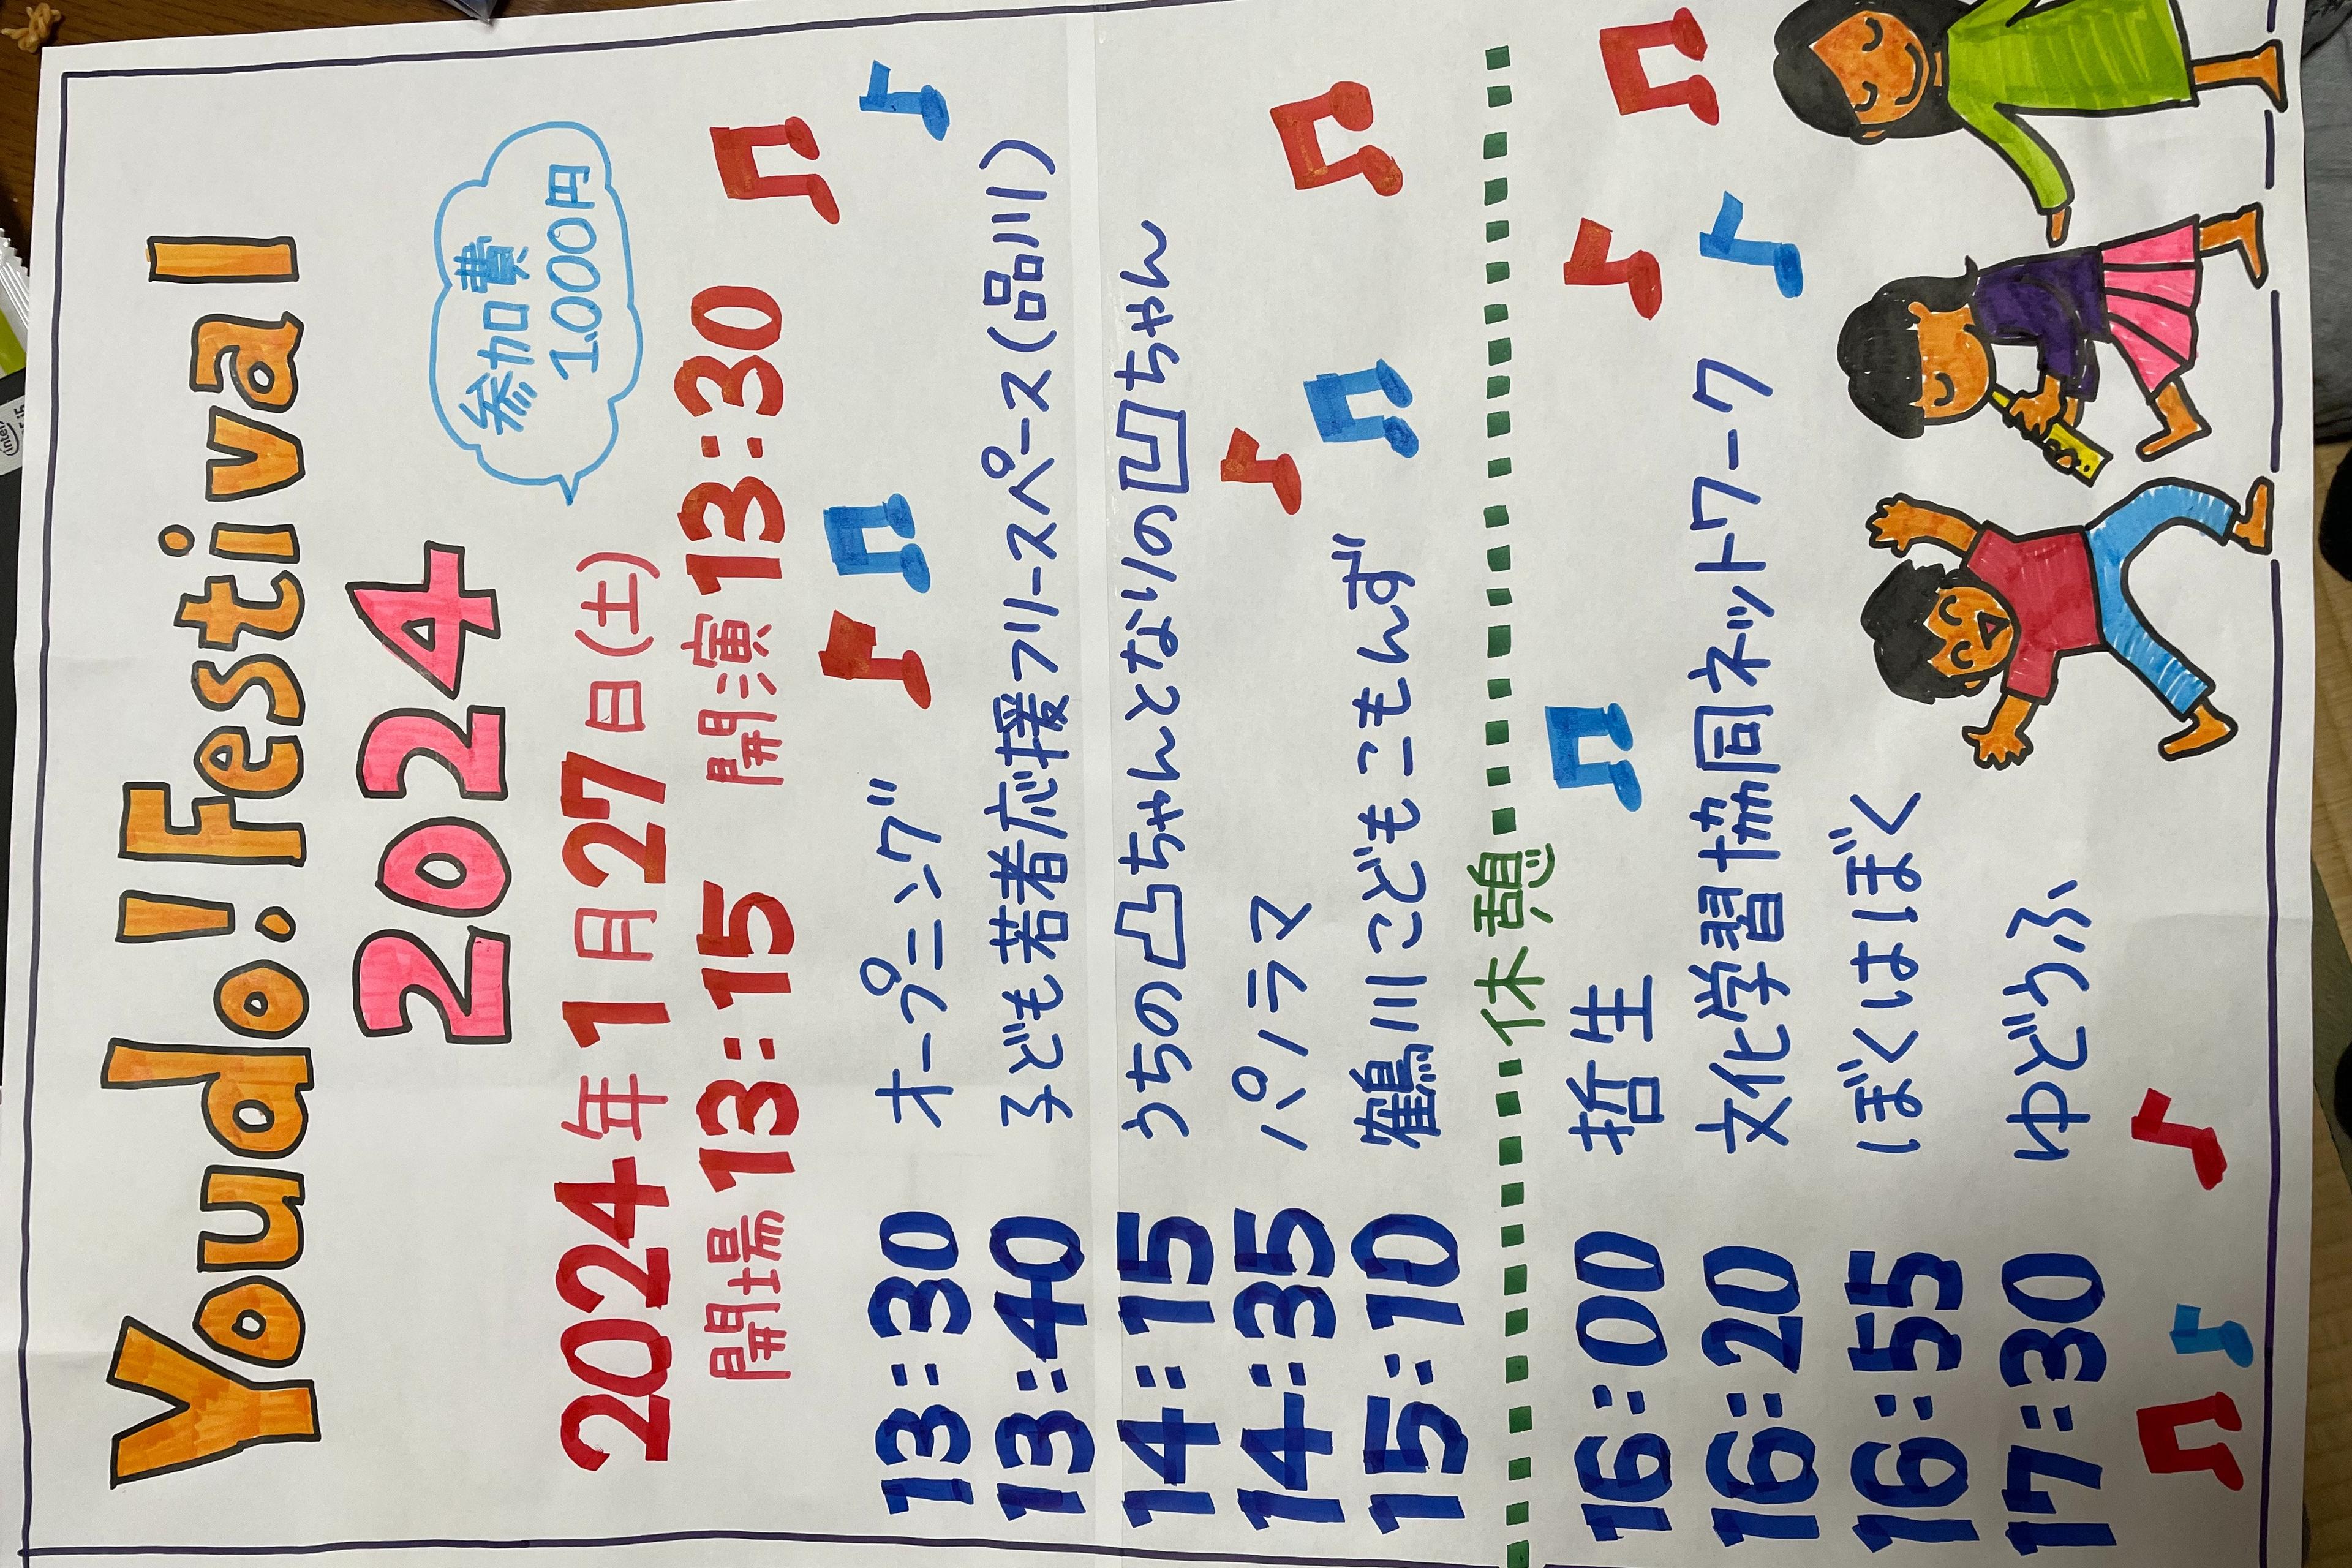 Youdo! Festival
2024
参加費
1.000円
2024年1月27日(土)
開場 13:15 開演 13:30
13:30 オープニング
13:40 子ども若者応援フリースペース(品川)
14:15 うちの凸ちゃんとなりの凹ちゃん
14:35 パノラマ
15:10 鶴川こどもこもんず
休憩
16:00 哲生
16:20 文化学習協同ネットワーク
16:55 ぼくはぼく
17:30 ゆどうふ
intel